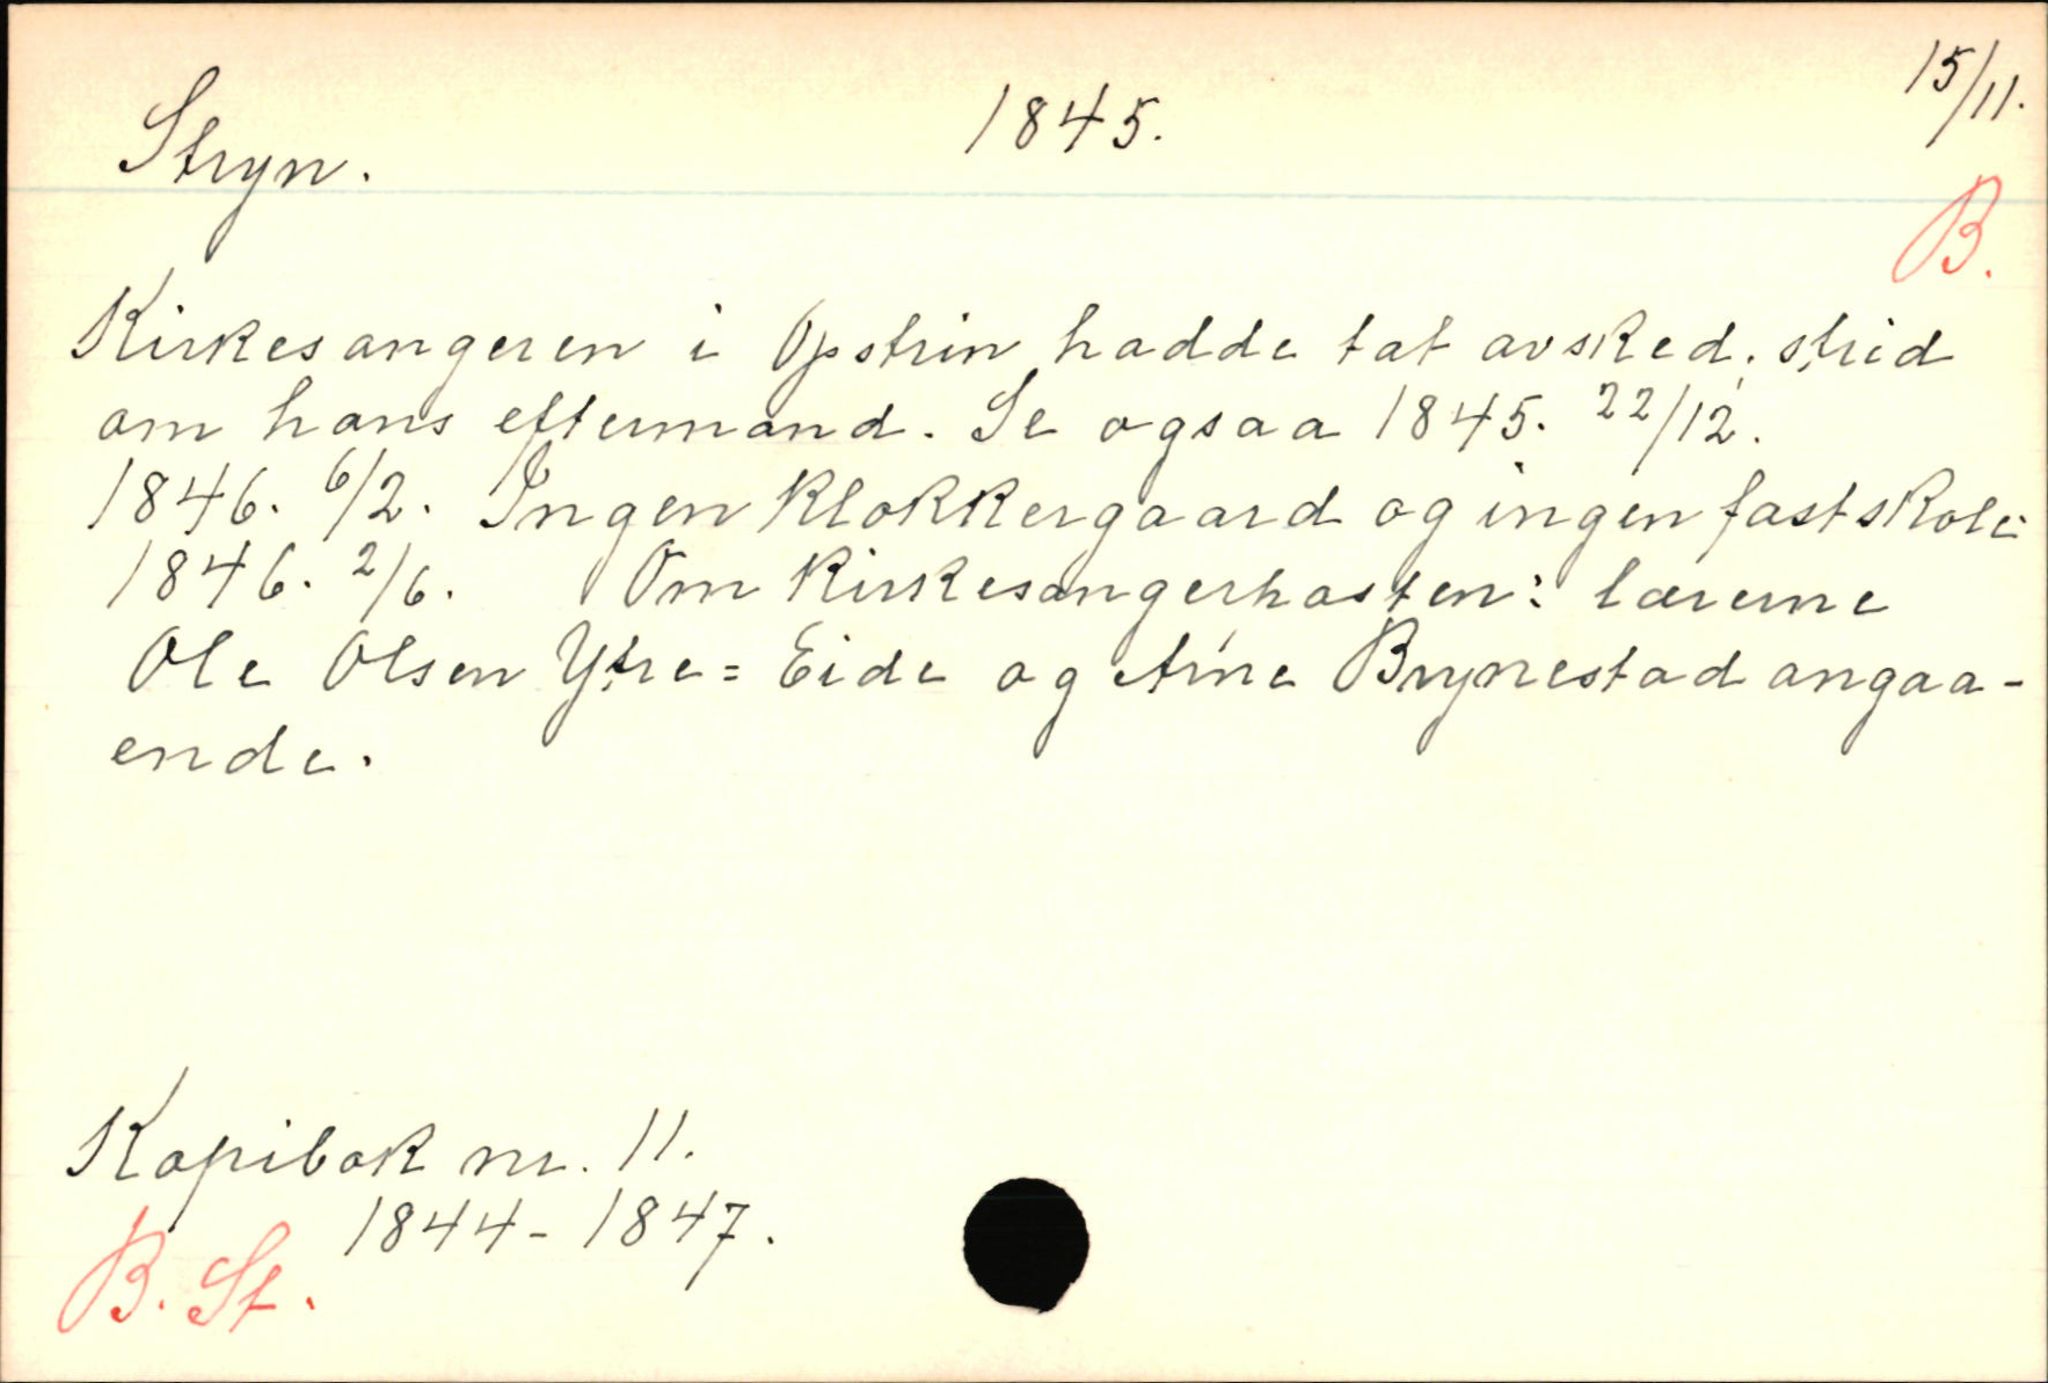 Stryn.
1845.
15/11.
B.
Kirkesangeren i Opstrin hadde tat avsked, strid
om hans eftermand. Se ogsaa 1845. 22/12.
1846. 6/2. Ingen Klokkergaard og ingen fast skole:
1846. 2/6. Om Kirkesangerposten: lærerne
Ole Olsen Ytre=Eide og Arne Brynestad angaa-
ende.
Kopibok nr. 11.
1844-1847.
B. St.